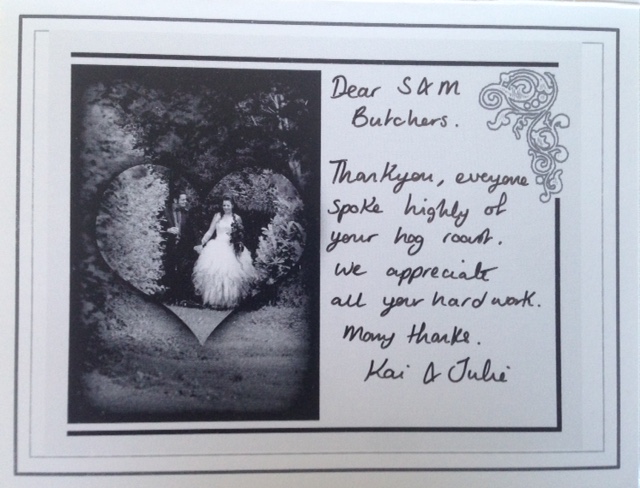 Dear S & M
Butchers.
Thankyou, everyone
spoke highly of
your hog roast.
We appreciate
all your hard work.
Many thanks.
Kai & Julie